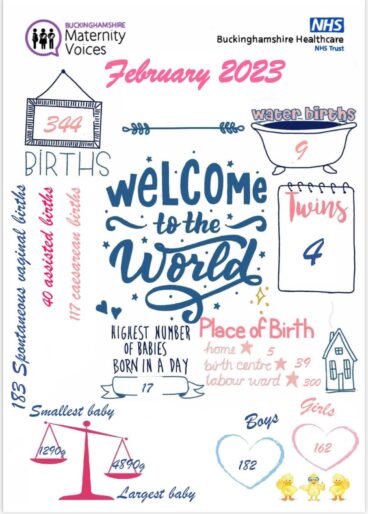 BUCKINGHAMSHIRE
Maternity
Voices
NHS
Buckinghamshire Healthcare
NHS Trust
February 2023
344
BIRTHS
water births
9
183 Spontaneous vaginal births
40 assisted births
117 caesarean births
WELCOME
to the
World
Twins
4
HIGHEST NUMBER
OF BABIES
BORN IN A DAY
17
Place of Birth
home 5
birth centre 39
labour ward 300
Smallest baby
1290g
4890g
Largest baby
Boys
182
Girls
162